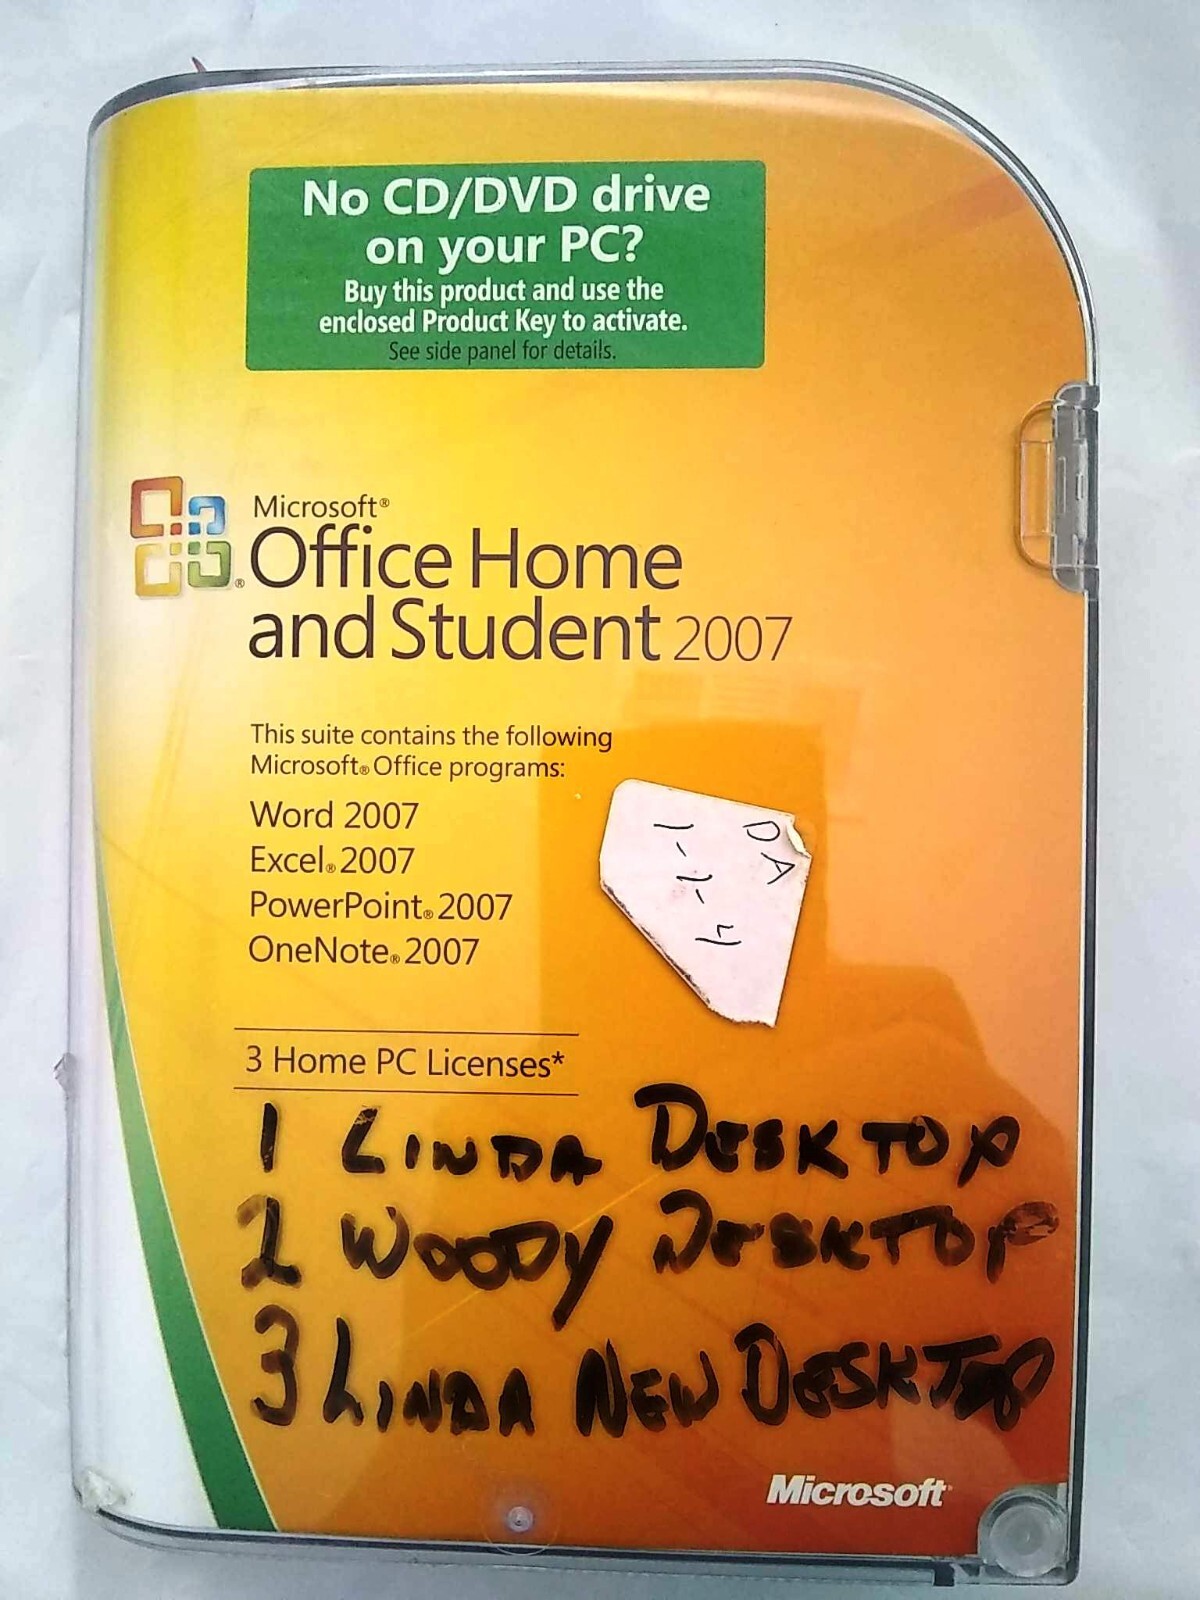 No CD/DVD drive
on your PC?
Buy this product and use the
enclosed Product Key to activate.
See side panel for details.
Microsoft®
Office Home
and Student 2007
This suite contains the following
Microsoft® Office programs:
Word 2007
Excel® 2007
PowerPoint® 2007
OneNote® 2007
DA
3 Home PC Licenses*
1 LINDA DESKTOP
2 WOODY DESKTOP
3 LINDA NEW DESKTOP
Microsoft